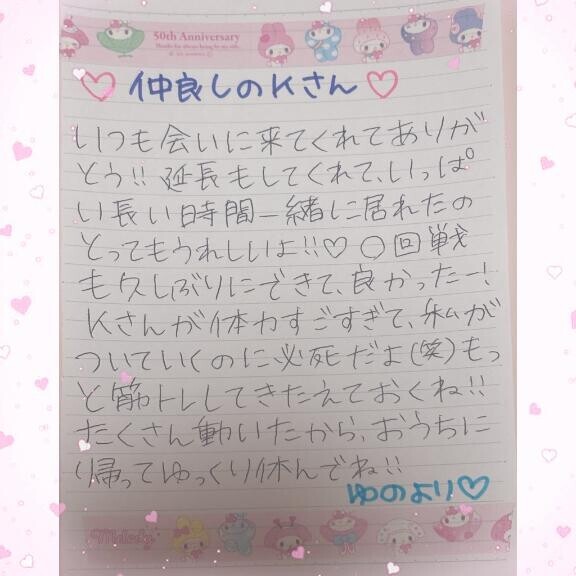 50th Anniversary
Thanks for always being by my side.
♡仲良しのKさん♡
いつも会いに来てくれてありが
とう!!延長もしてくれて、いっぱ
い長い時間一緒に居れたの
とってもうれしいよ!!♡〇回戦
も久しぶりにできて、良かったー!
Kさんが体力すごすぎて、私が
ついていくのに必死だよ(笑)もっ
と筋トレしてきたえておくね!!
たくさん動いたから、おうちに
り帰ってゆっくり休んでね!!
ゆのより♡
Melody